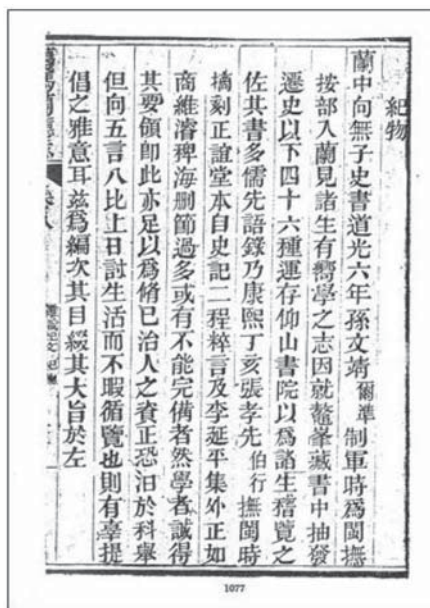 紀物
蘭中向無子史書道光六年孫文靖爾準制軍時爲閩撫
按部入蘭見諸生有嚮學之志因就鼇峯藏書中抽發
遷史以下四十六種運存仰山書院以爲諸生稽覽之
佐其書多儒先語錄乃康熙丁亥張孝先伯行撫閩時
摘刻正誼堂本自史記二程粹言及李延平集外正如
商維濬稗海刪節過多或有不能完備者然學者誠得
其要領即此亦足以爲脩已治人之資正恐汨於科舉
但向五言八比上日討生活而不暇循覽也則有辜提
倡之雅意耳茲爲編次其目綴其大旨於左
1077